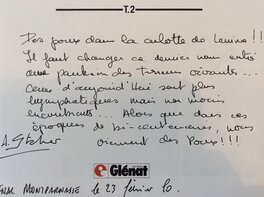 T.2
Des poux dans la culotte de Lenine !!
Il faut changer ce dernier nous entré
au pantheon des Tireurs vivants...
Ceux d'aujourd'Hui sont plus
lymphatiques mais non moins
encombrants... Alors que dans ces
époques de bi-centenaires, nous
viennent des Poux !!!
Glénat
Montparnasse le 23 février 10.